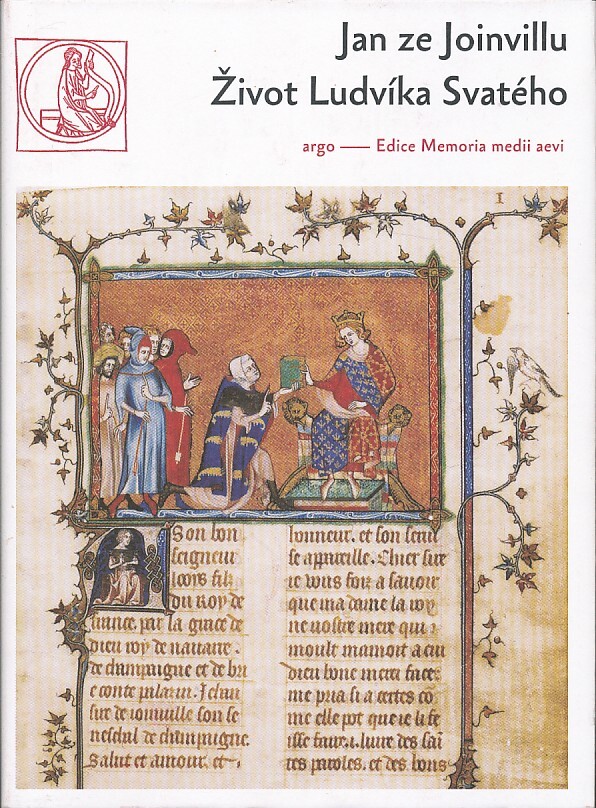 Jan ze Joinvillu
Život Ludvíka Svatého
argo — Edice Memoria medii aevi
I
A Son bon
seigneur
looys filz
du Roy de
france. par la grace de
dieu roy de nauarre.
de champaigne et de bri
e conte palazin. Jehan
sire de ioinuille son se
neschal de champaigne.
Salut et amour. et
honneur. et son seruise
appareille. Chier sire
ie vous foiz a sauoir
que ma dame la roy
ne uostre mere qui
moult mamoit a cui
dieu bone merci face
me pria si a certes co
me elle pot que ie li fe
isse faire .i. liure des sai
tes paroles. et des bons